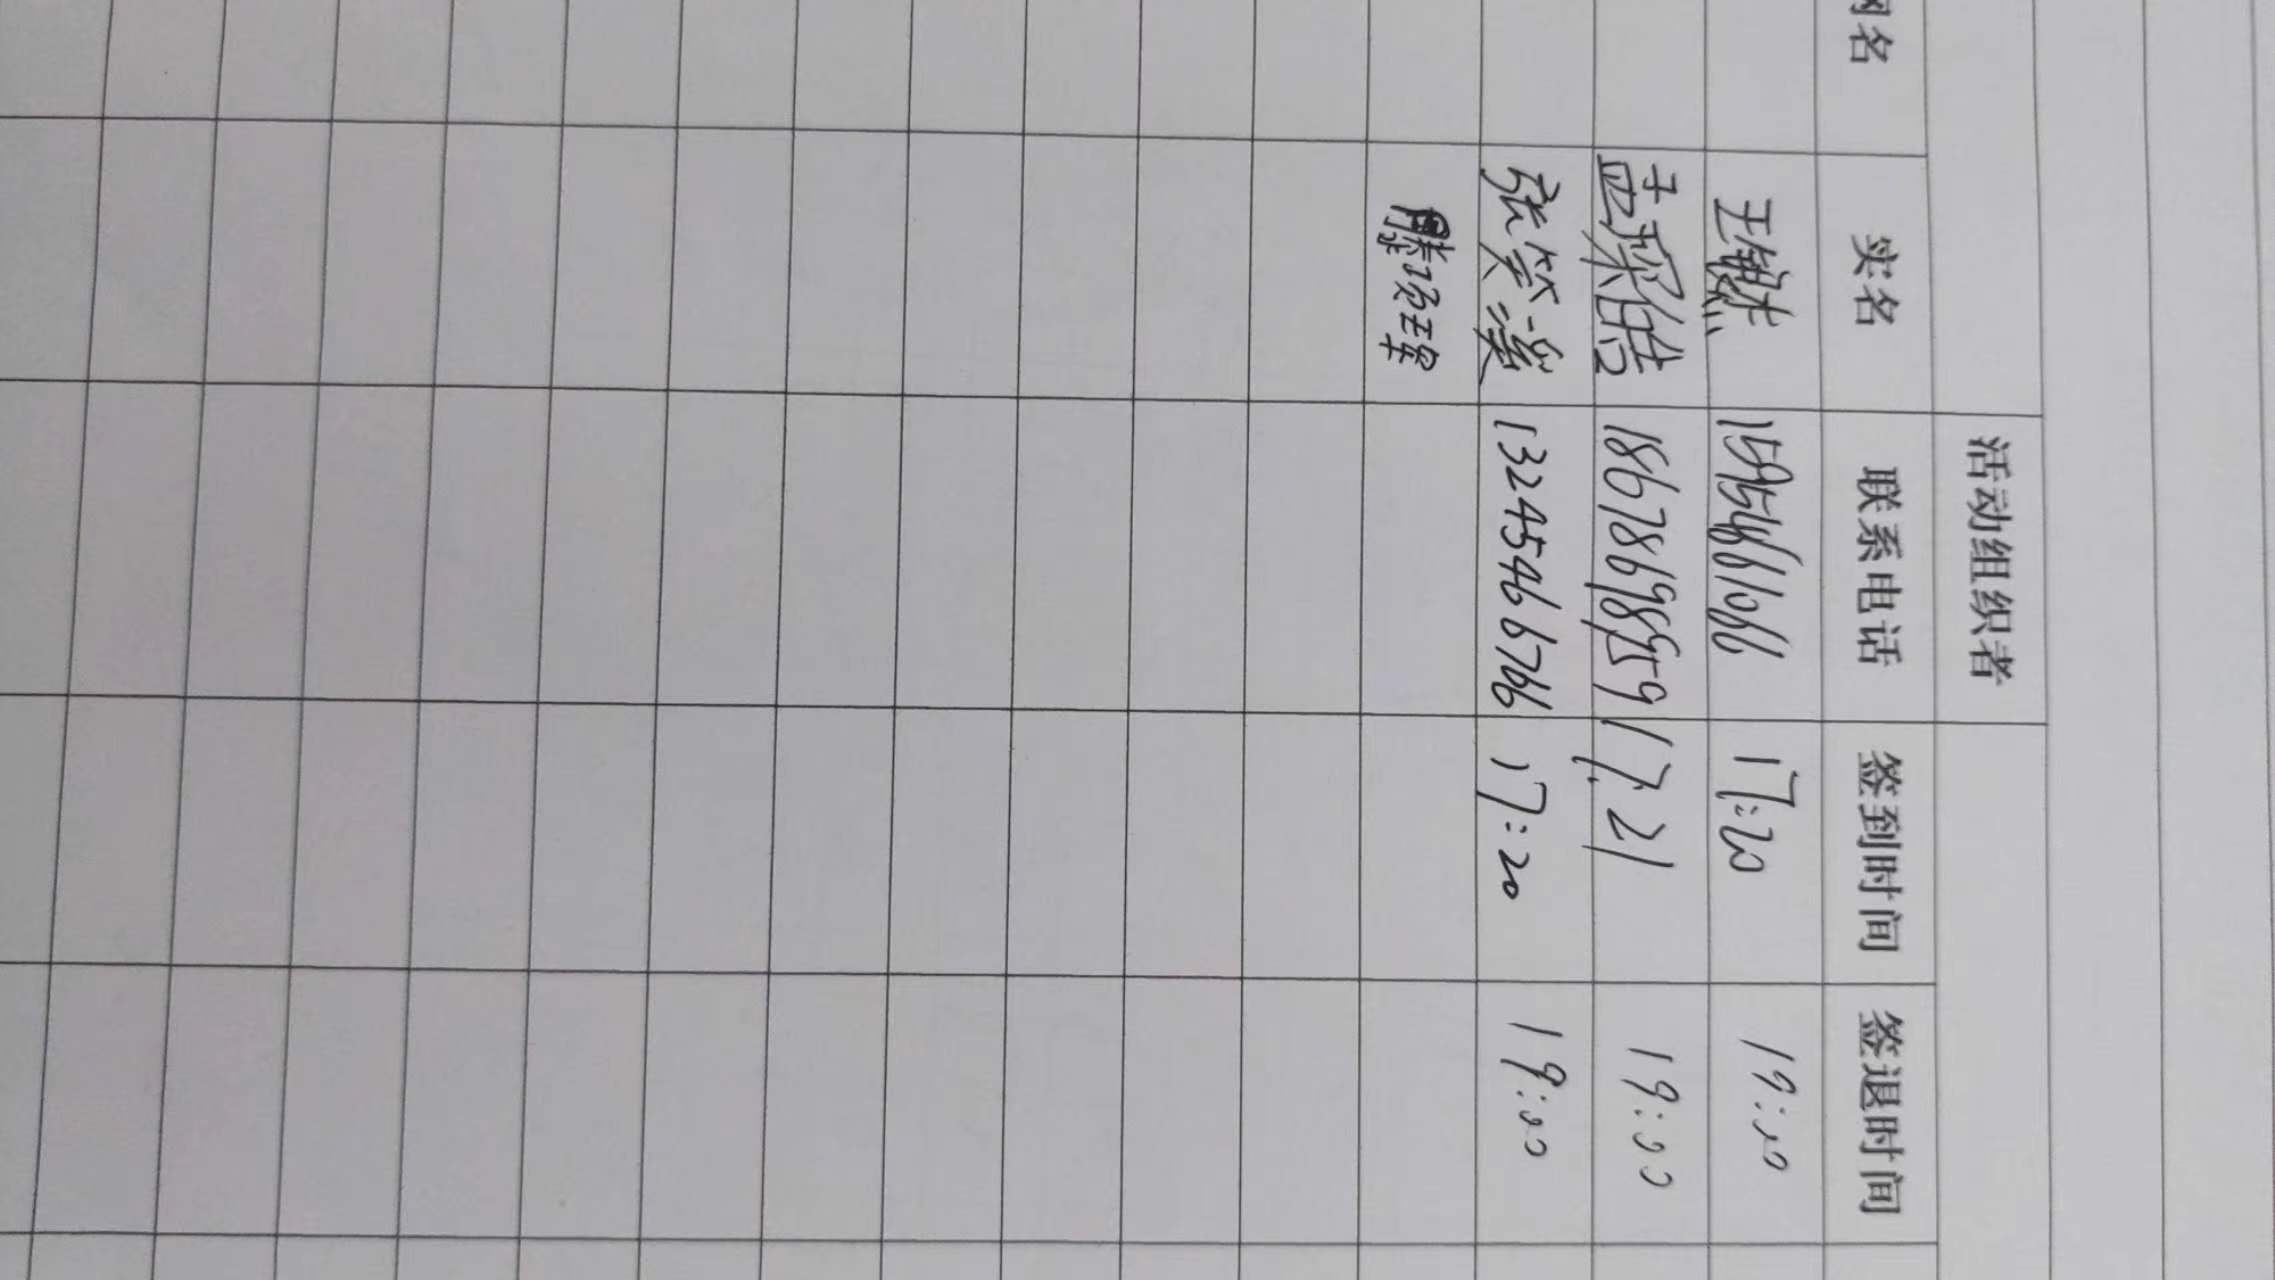 活动组织者
网名 实名 联系电话 签到时间 签退时间
王 17:20 19:00
孟 18678698959 17:21 19:00
张笑溪 13245466766 17:20 19:00
滕琼玮